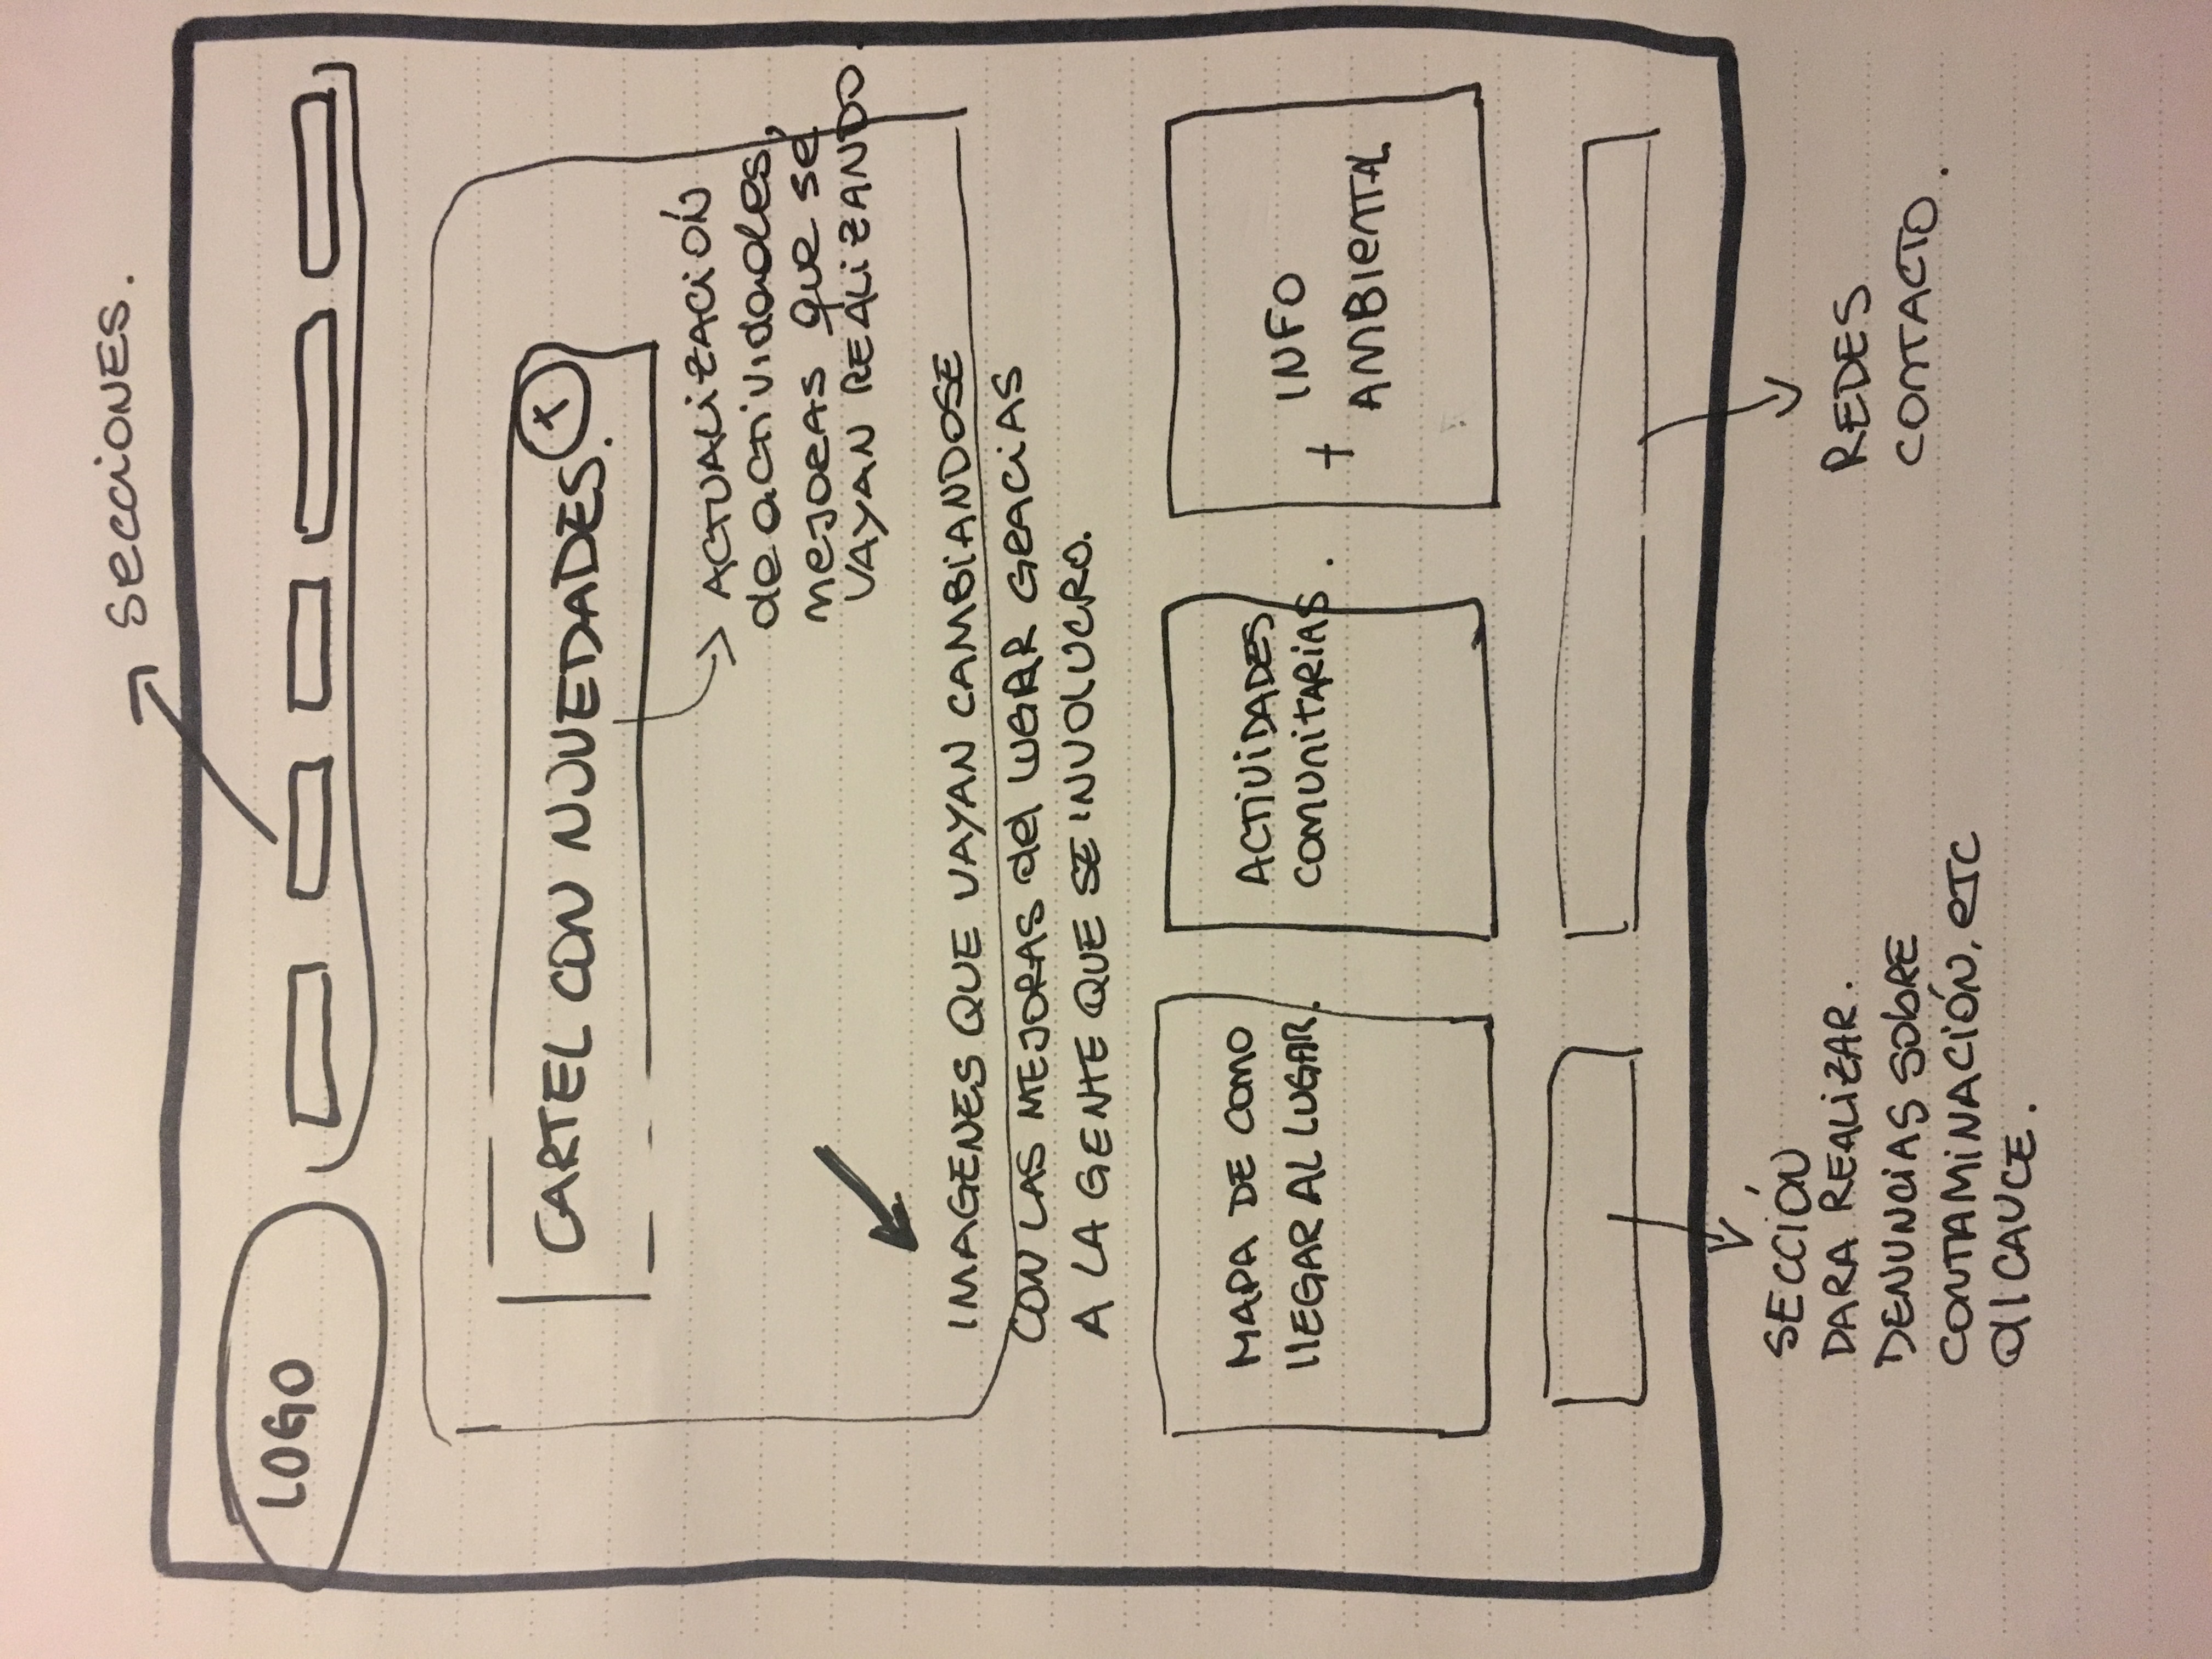 Secciones.
LOGO
CARTEL CON NUVEDADES.
x
ACTUALIZACIÓN
de actividades,
mejoras que se
VAYAN REALIZANDO.
IMAGENES QUE VAYAN CAMBIANDOSE
CON LAS MEJORAS del LUGAR GRACIAS
A LA GENTE QUE SE INVOLUCRO.
MAPA DE COMO
llEGAR AL LUGAR.
ACTIVIDADES
COMUNITARIAS.
+ INFO
AMBIENTAL
SECCIÓN
PARA REALIZAR.
DENUNCIAS SOBRE
CONTAMINACIÓN, ETC
all CAUCE.
REDES
CONTACTO.